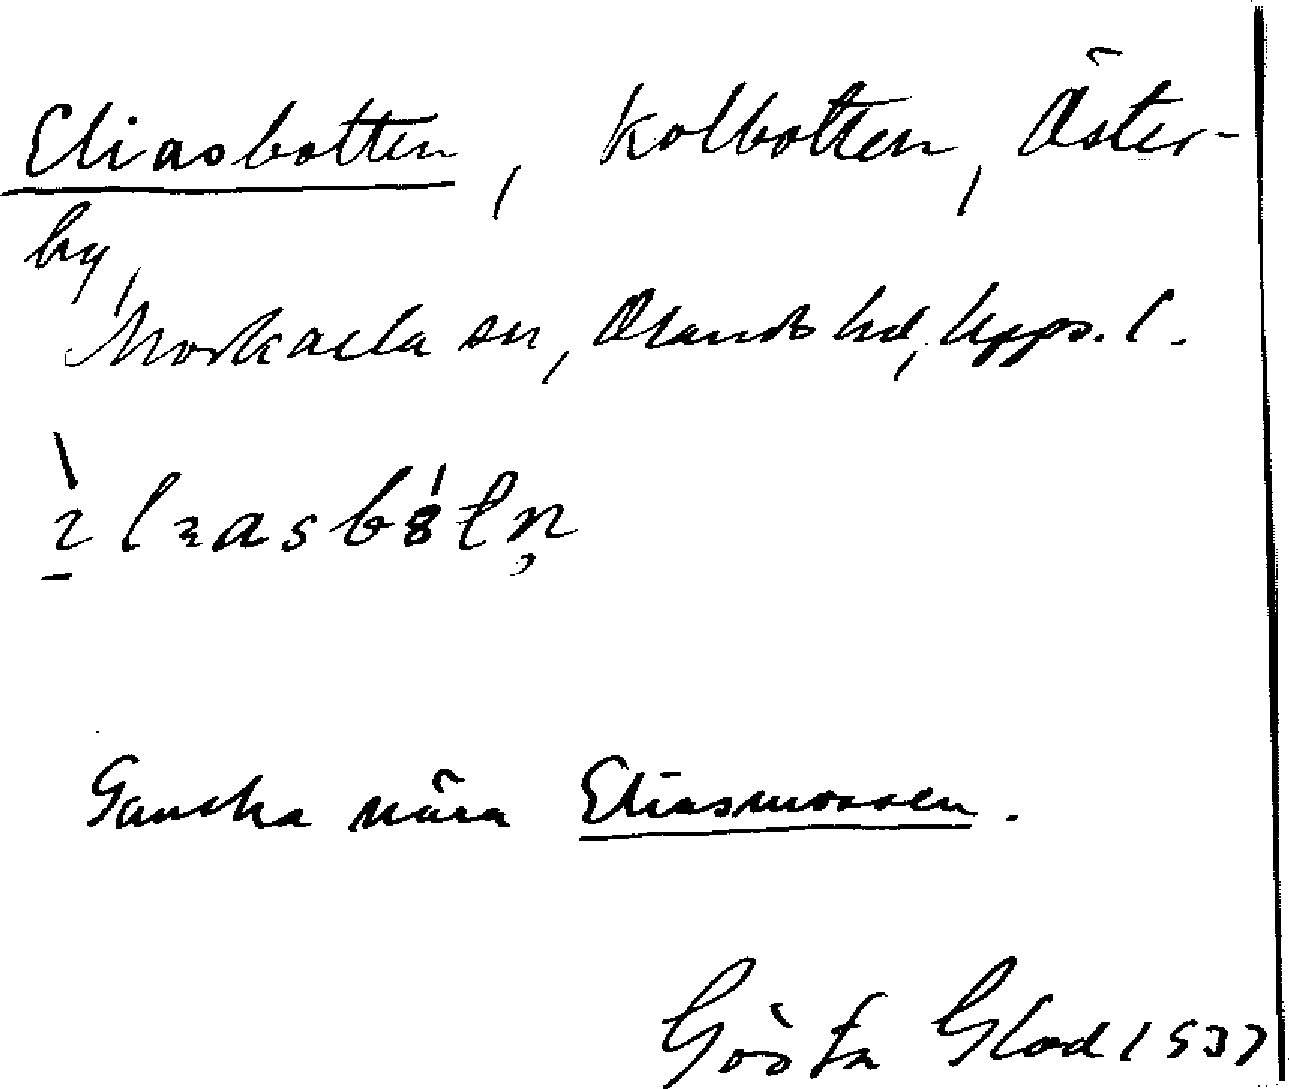 Eliasbotten, kolbotten, Öster-
by,
Morkarla sn, Olands hd, Upps. l.
ìlɩasbót̄n̥
Ganska nära Eliasmossen.
Gösta Glad 1937